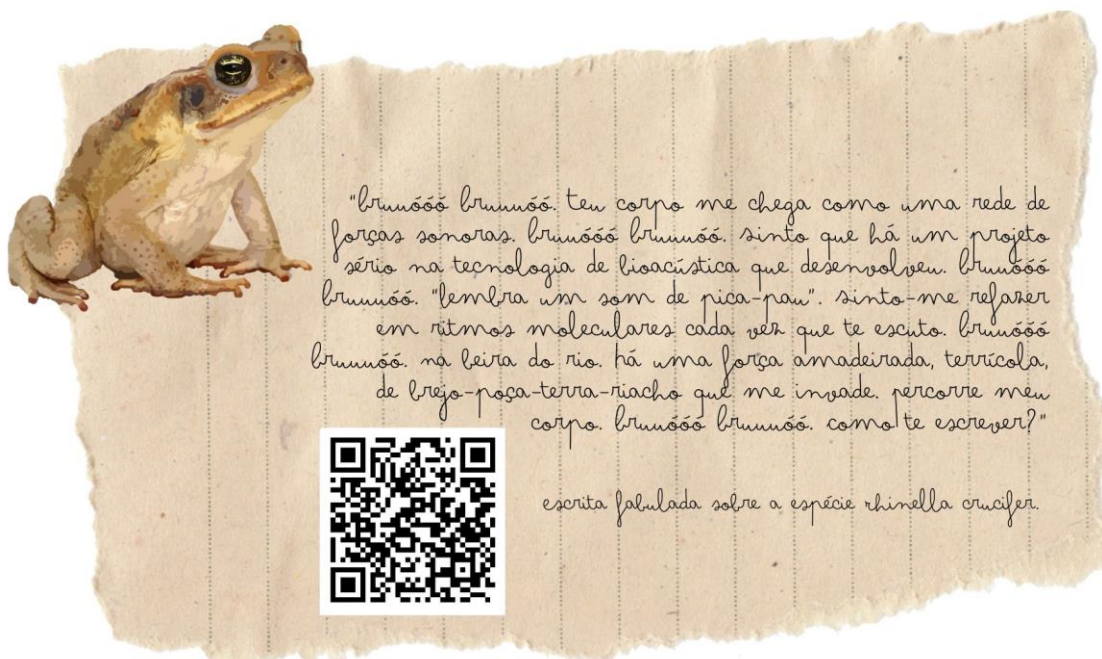 "bruuóóó bruuuóó. teu corpo me chega como uma rede de
forças sonoras. bruuóóó bruuuóó. sinto que há um projeto
sério na tecnologia de bioacústica que desenvolveu. bruuóóó
bruuuóó. "lembra um som de pica-pau". sinto-me refazer
em ritmos moleculares cada vez que te escuto. bruuóóó
bruuuóó. na beira do rio. há uma força amadeirada, terrícola,
de brejo-poça-terra-riacho que me invade. percorre meu
corpo. bruuóóó bruuuóó. como te escrever?"
escrita fabulada sobre a espécie rhinella crucifer.